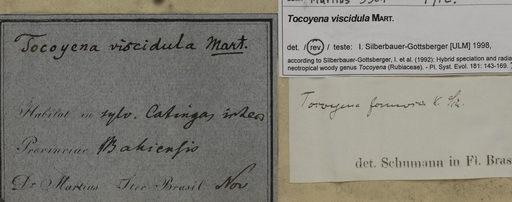 Tocoyena viscidula Mart.
Habitat in sylv. Catingas
Provinciae Bahiensis
Dr Martius Iter Brasil. Nov
Martius
Tocoyena viscidula MART.
det. / rev / teste: I. Silberbauer-Gottsberger [ULM] 1998,
according to Silberbauer-Gottsberger, I. et al. (1992): Hybrid speciation and radia
neotropical woody genus Tocoyena (Rubiaceae). - Pl. Syst. Evol. 181: 143-169.
Tocoyena formosa
det. Schumann in Fl. Bras